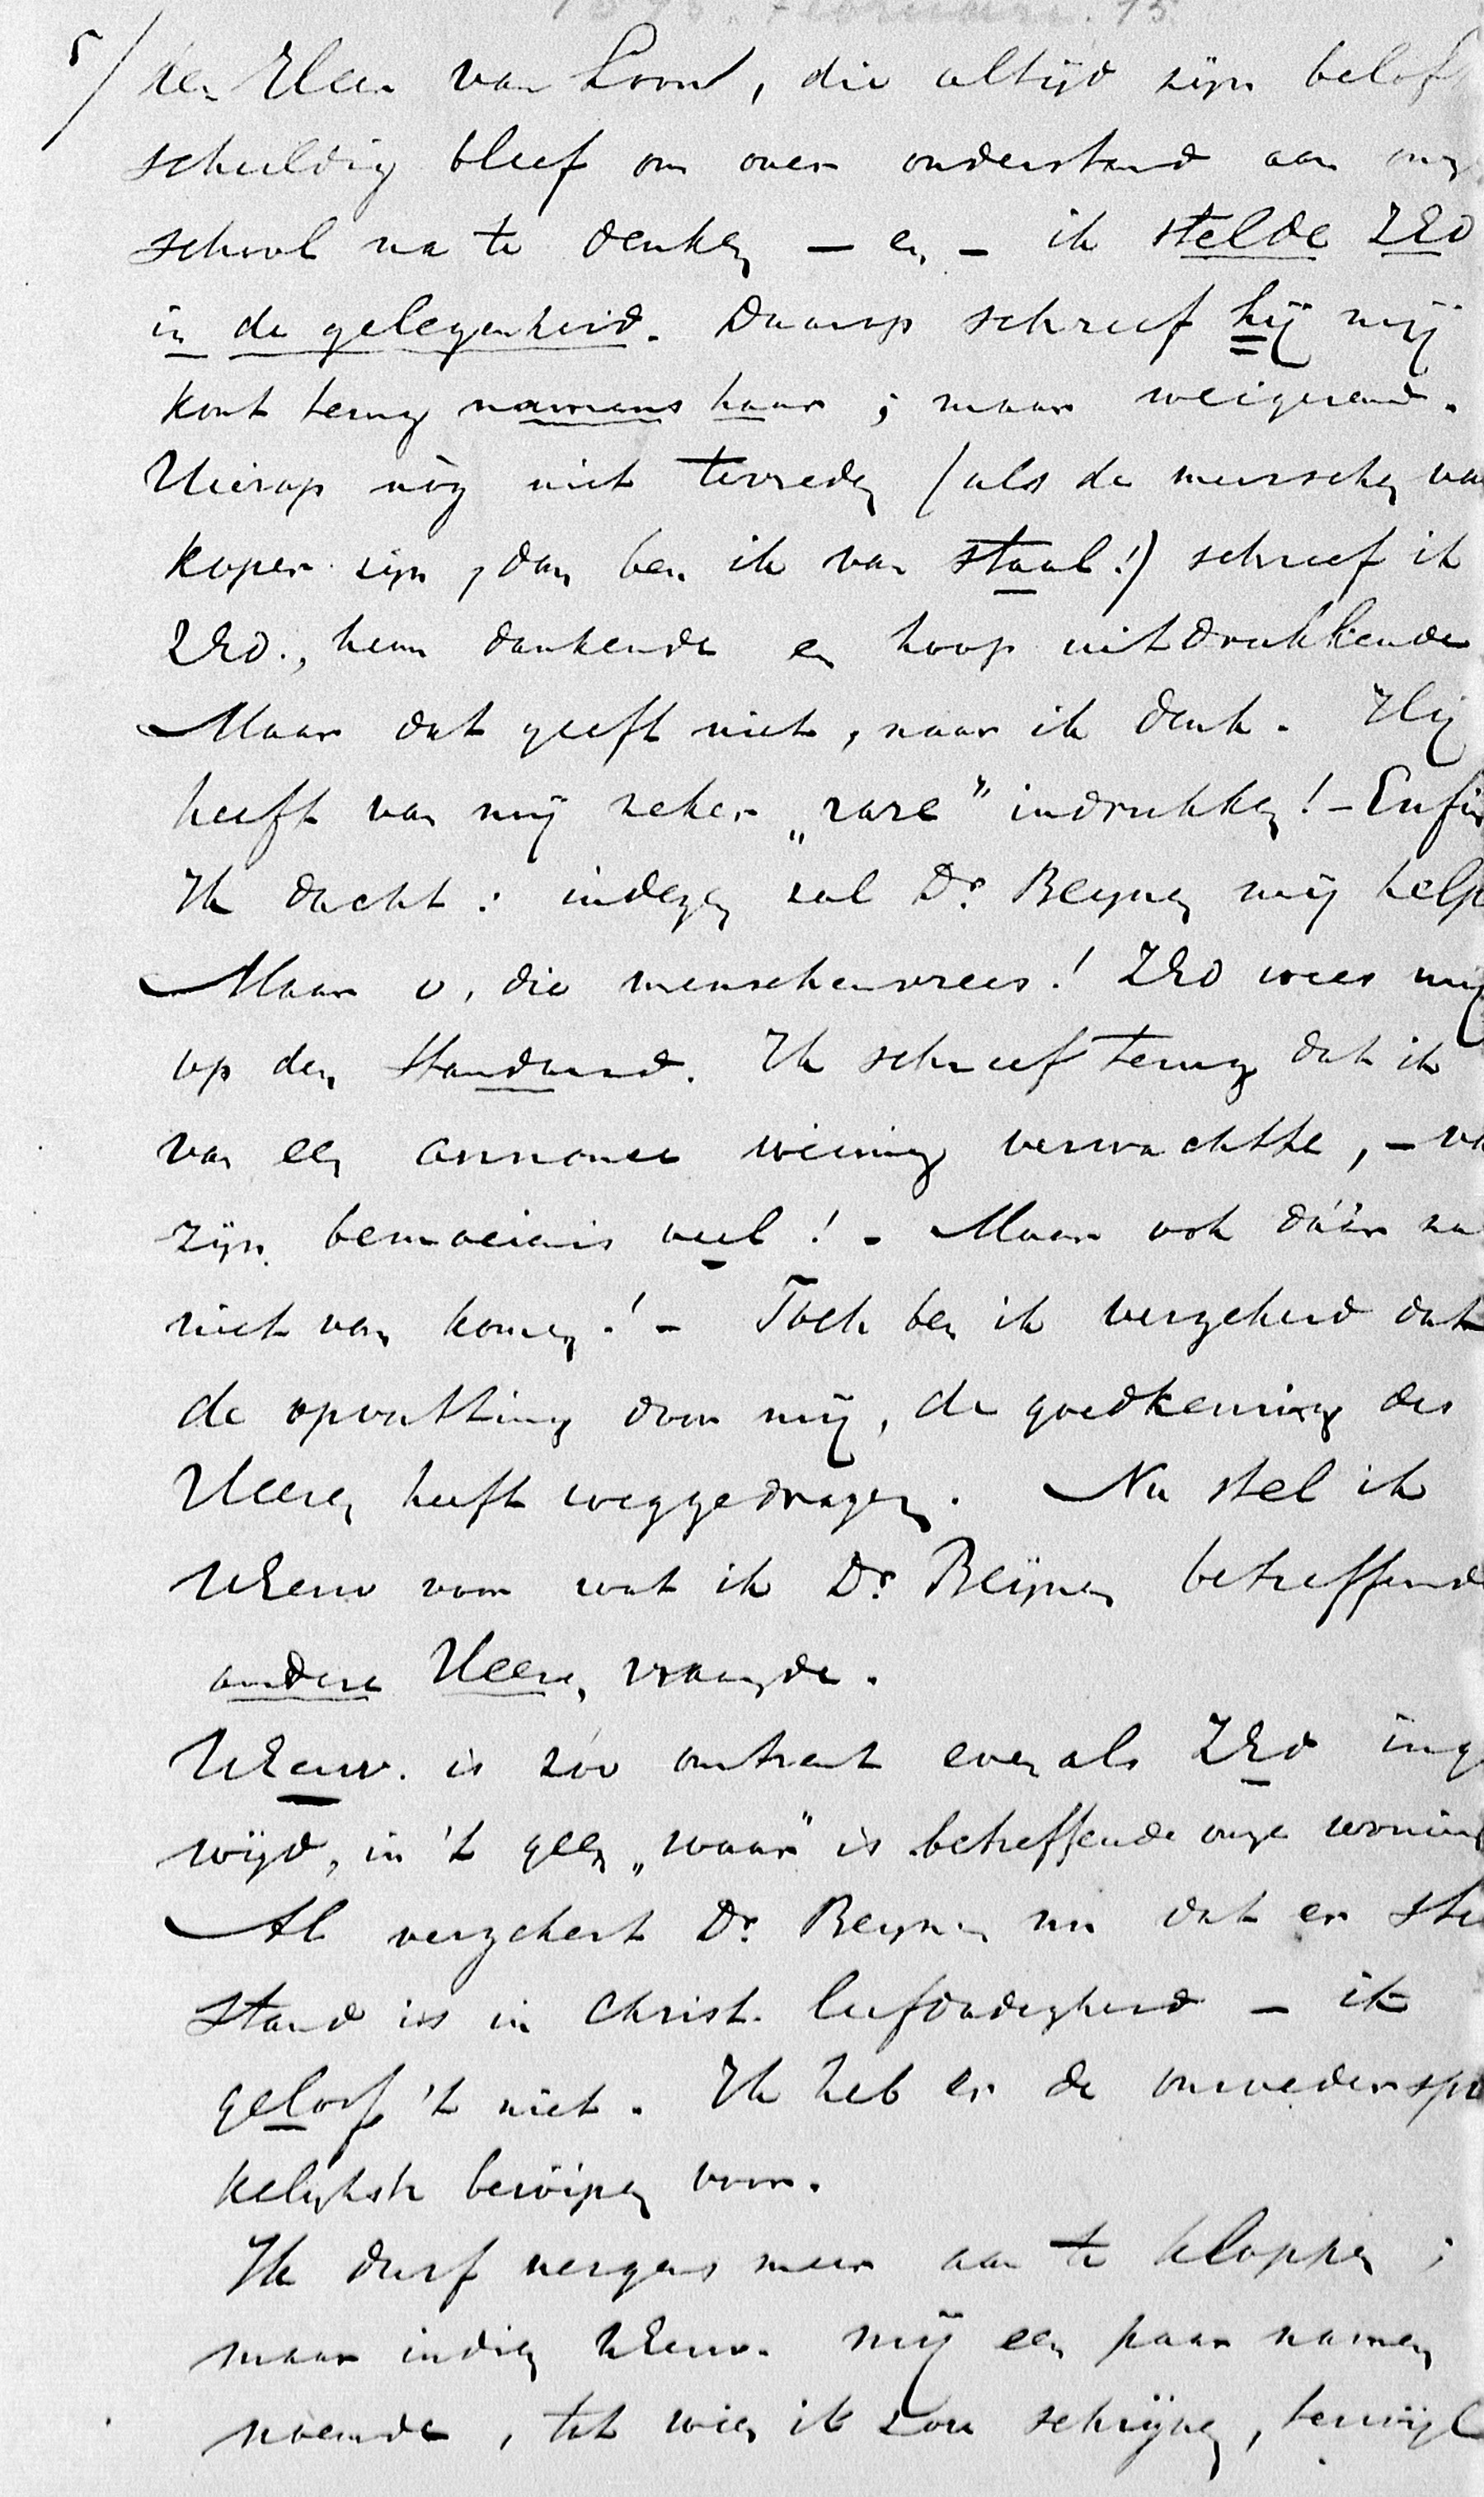 5/ den Heer van Loon, die altijd zijn belof
schuldig bleef om over onderstand aan onz
school na te denken — en — ik stelde ZEd
in de gelegenheid. Daarop schreef hij mij
kort terug namens haar; maar weigerend.
Hierop nòg niet tevreden (als de menschen va
koper zijn, dan ben ik van staal!) schreef ik
ZEd., hem dankende en hoop uitdrukkende
Maar dat geeft niet, naar ik denk. Hij
heeft van mij zeker „rare” indrukken! – Enfin
Ik dacht: indezen zal Dr. Beynen mij help
Maar o, die menschenvrees! ZEd wees mij
op den Standaard. Ik schreef terug dat ik
van een annonce weinig verwachtte, – va
zijn bemoeienis veel! – Maar ook dáár za
niet van komen! – Toch ben ik verzekerd dat
de opvatting door mij, de goedkeuring des
Heeren heeft weggedragen. Nu stel ik
UEew voor wat ik Dr. Beijnen betreffend
andere Heeren vraagde.
UEew. is zóó omtrent even als ZEd inge
wijd, in 't geen „waar” is betreffende onze woning
Al verzekert Dr. Beynen nu dat er stil
stand is in Christ. liefdadigheid — ik
geloof 't niet. Ik heb er de onwederspre
kelijkste bewijzen voor.
Ik durf nergens meer aan te kloppen;
maar indien UEew. mij een paar namen
noemde, tot wien ik zou schrijven, terwijl